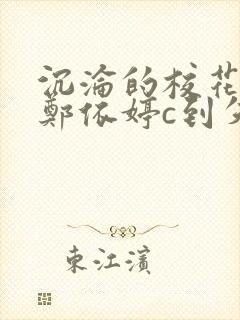 沉淪的校花
鄭依婷c到
東江濱